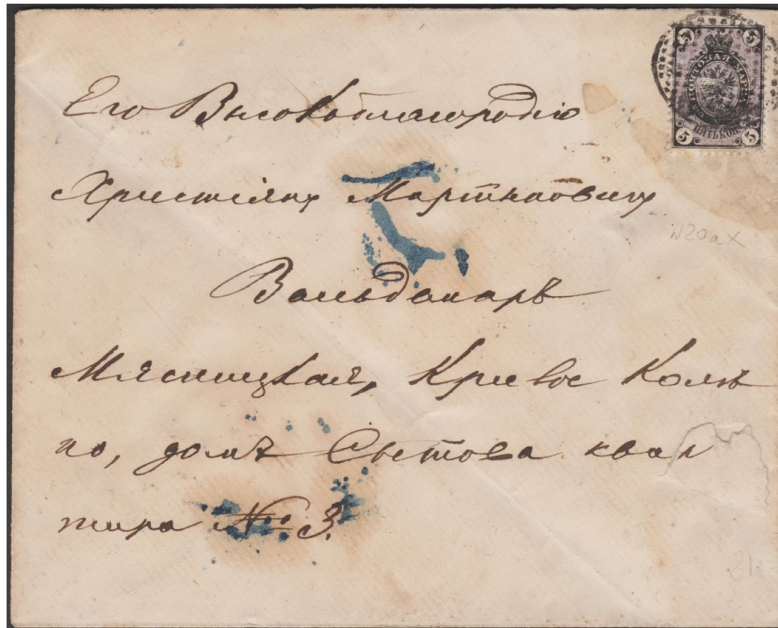 5 5
ПОЧТОВАЯ МАРКА
ПЯТЬ КОП
5 5
Его Высокоблагородію
Христіяну Мартыновичу
N20аX
Вальданаръ
Мясницкая, Кривое Колѣ
но, домъ Сѣтова квар
тира №3.